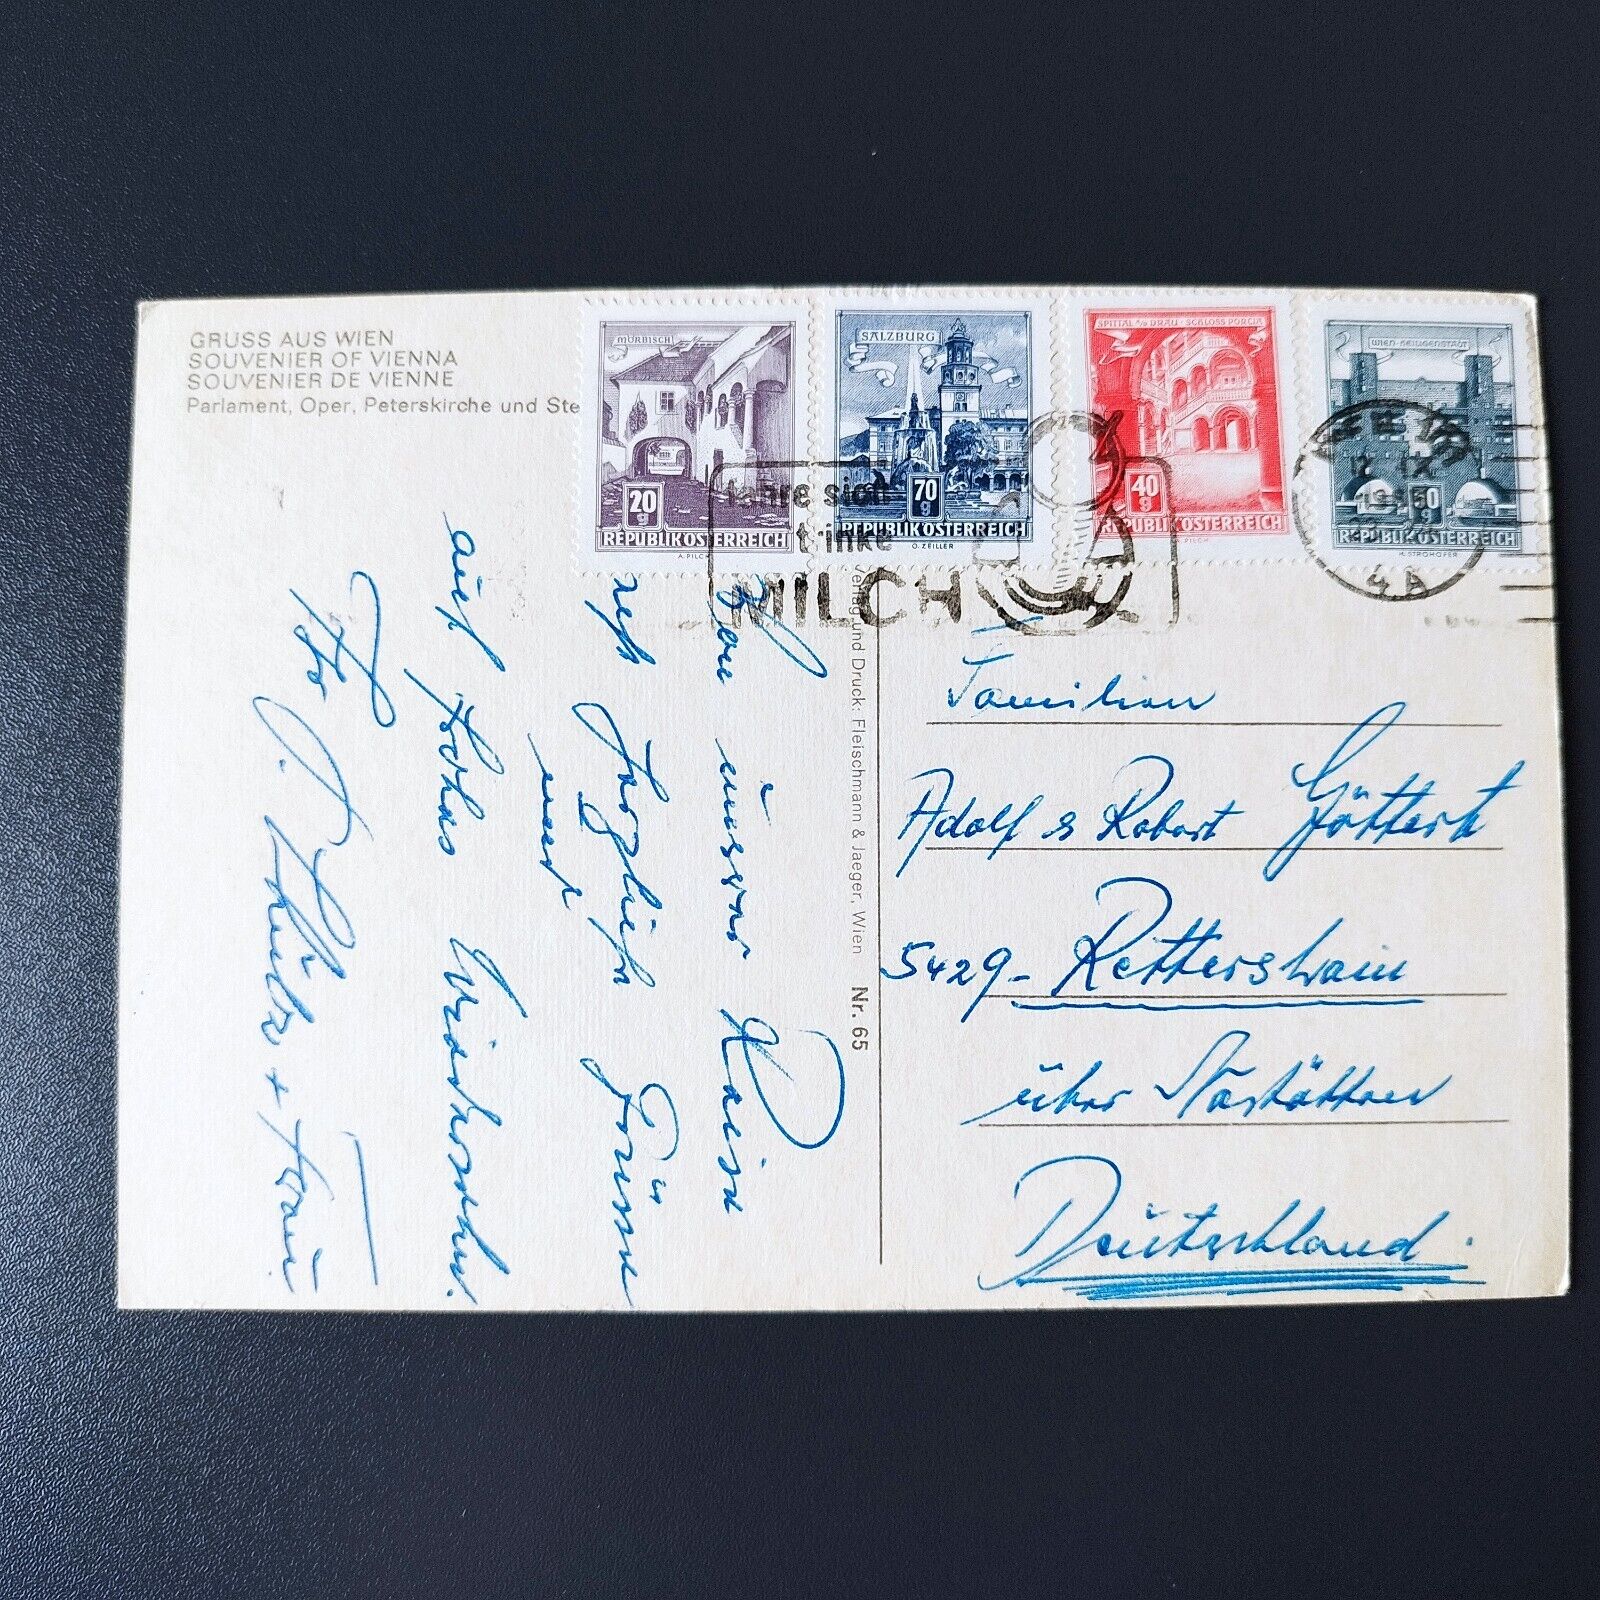 GRUSS AUS WIEN
SOUVENIER OF VIENNA
SOUVENIER DE VIENNE
Parlament, Oper, Peterskirche und Ste
MÖRBISCH
20 g
REPUBLIK ÖSTERREICH
A. PILCH
SALZBURG
70 g
REPUBLIK ÖSTERREICH
O. ZEILLER
SPITTAL a/d DRAU - SCHLOSS PORCIA
40 g
REPUBLIK ÖSTERREICH
PILCH
WIEN-HEILIGENSTADT
50 g
REPUBLIK ÖSTERREICH
H. STROHOFER
trinke
MILCH
4A
Verlag und Druck: Fleischmann & Jaeger, Wien Nr. 65
Von unserer Reise
recht herzliche Grüsse
und
auf frohes Wiedersehen.
Ihr
+ Frau
Familien
Adolf & Robert Göttert
5429 - Rettershain
über Nastätten
Deutschland.